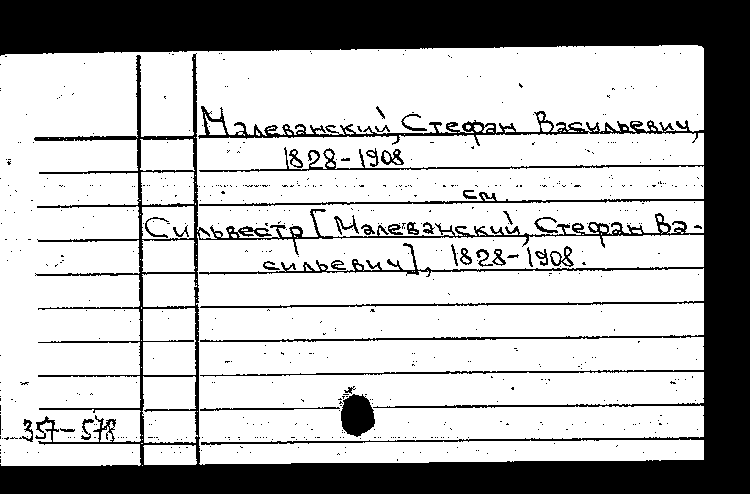 Малеванский, Стефан Васильевич,
1828-1908
см.
Сильвестр [Малеванский, Стефан Ва-
сильевич], 1828-1908.
357-578